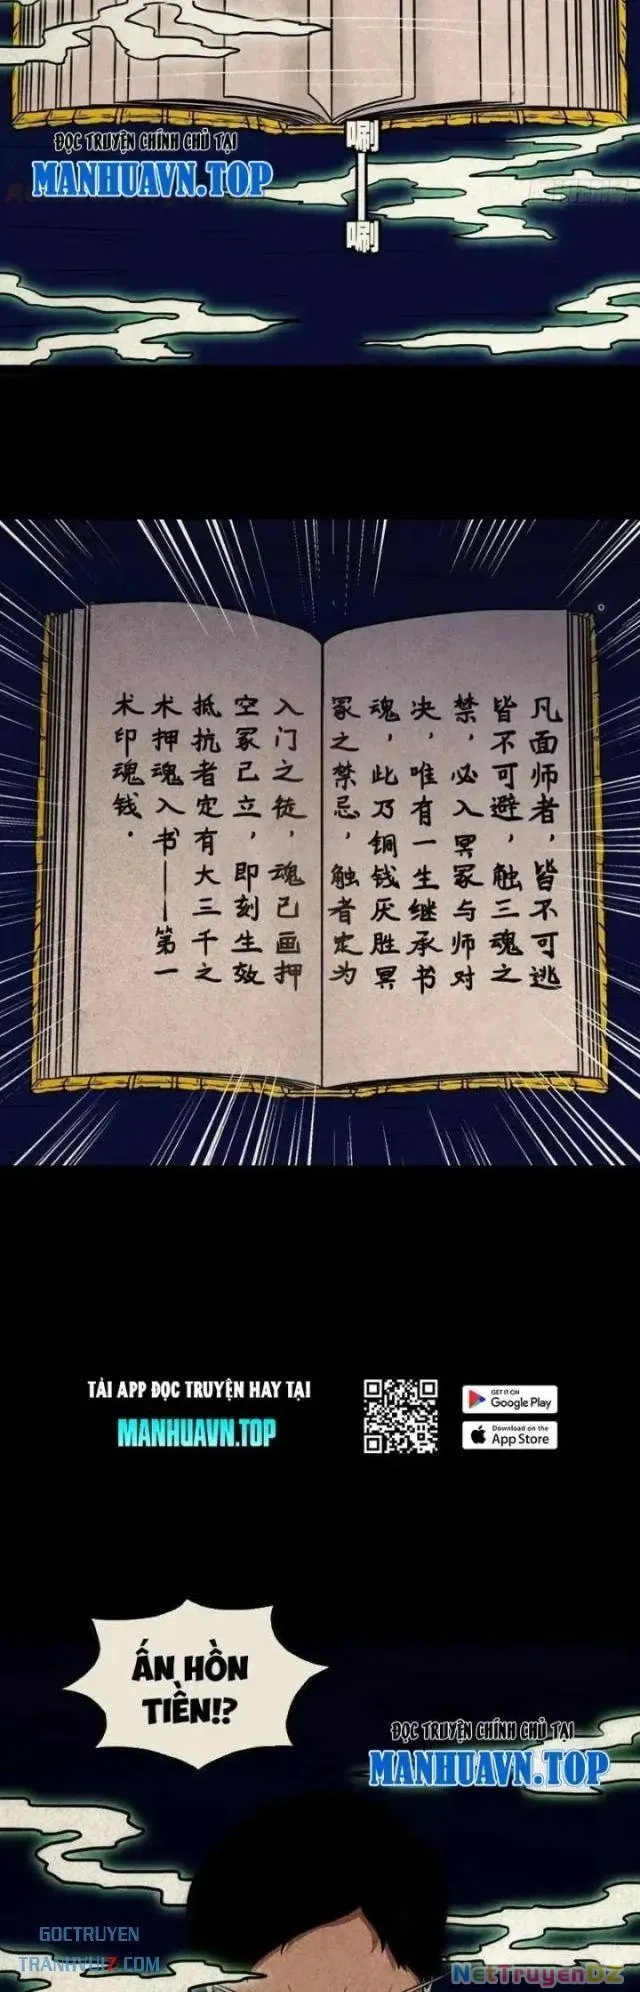 ĐỌC TRUYỆN CHÍNH CHỦ TẠI
MANHUAVN.TOP
唰
唰
凡面师者，皆不可逃
皆不可避，触三魂之
禁，必入冥冢与师对
决，唯有一生继承书
魂，此乃铜钱厌胜冥
冢之禁忌，触者定为
入门之徒，魂己画押
空冢己立，即刻生效
抵抗者定有大三千之
术押魂入书——第一
术印魂钱．
TẢI APP ĐỌC TRUYỆN HAY TẠI
MANHUAVN.TOP
GET IT ON
Google Play
Download on the
App Store
ẤN HỒN
TIỀN!?
ĐỌC TRUYỆN CHÍNH CHỦ TẠI
MANHUAVN.TOP
GOCTRUYEN
TRANHVUI7.COM
NetTruyenDZ